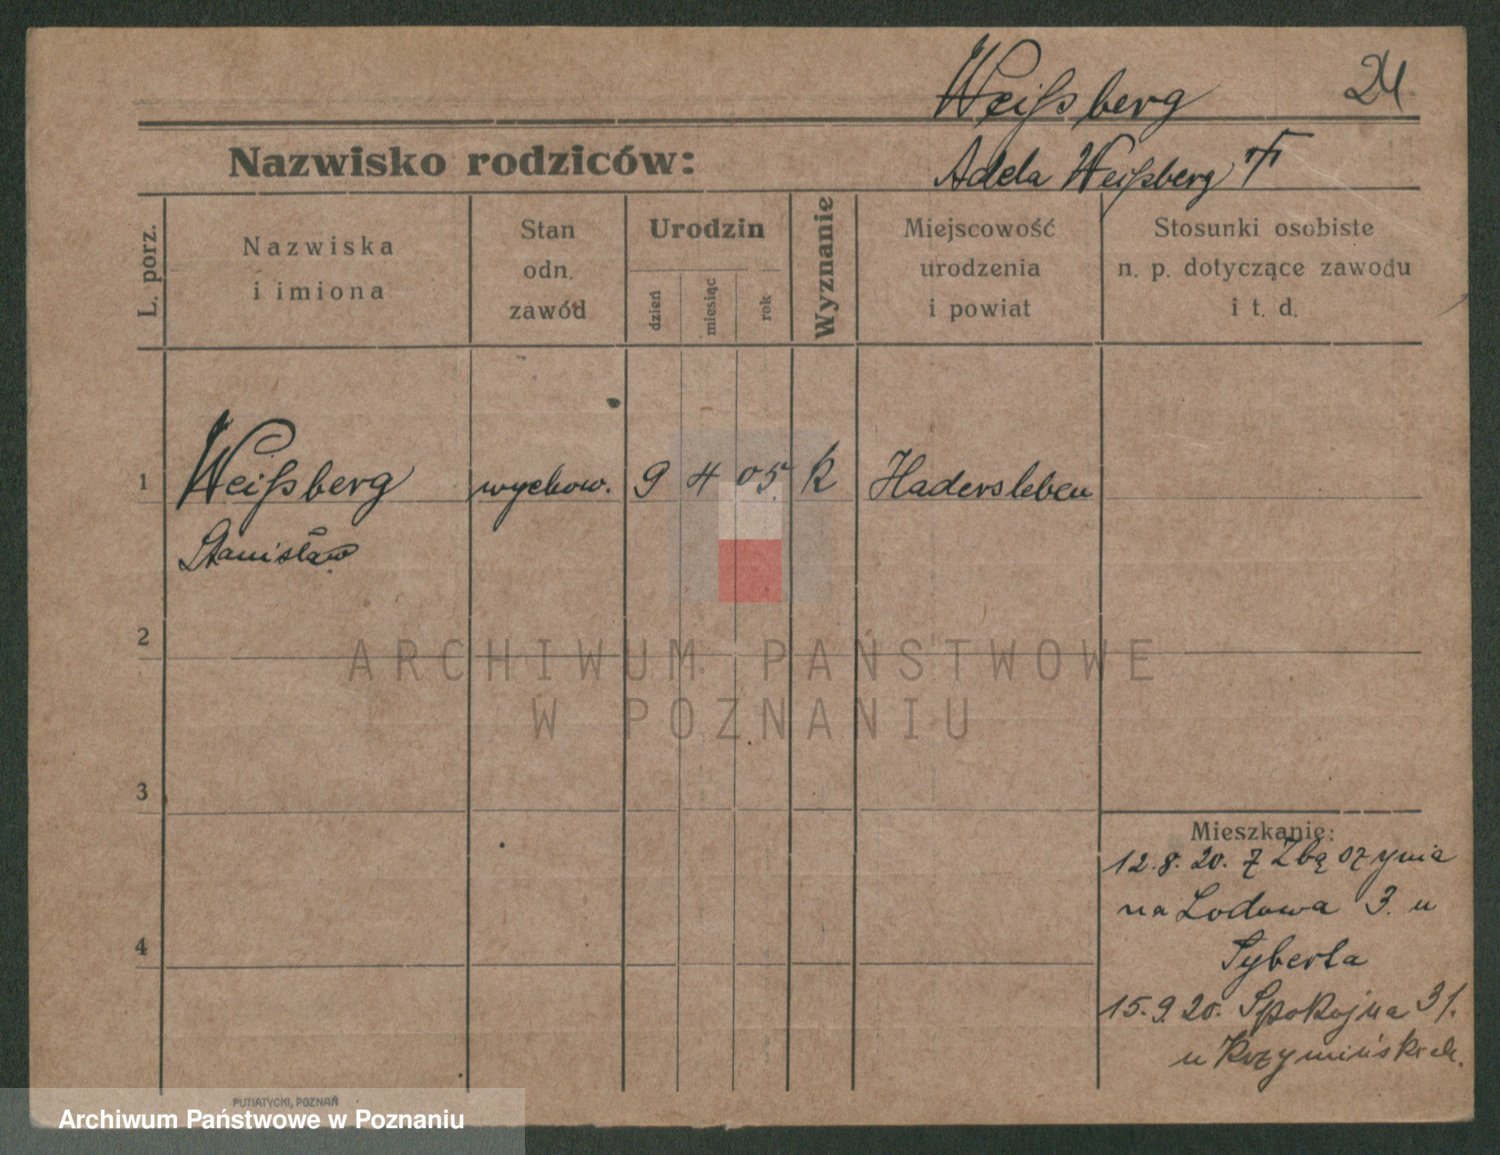 Weißberg
24
Nazwisko rodziców:
Adela Weißberg
L. porz.
Nazwiska
i imiona
Stan
odn.
zawód
Urodzin
dzień
miesiąc
rok
Wyznanie
Miejscowość
urodzenia
i powiat
Stosunki osobiste
n. p. dotyczące zawodu
i t. d.
1
Weißberg
wychow.
9
4
05.
k
Hadersleben
Stanisław
2
ARCHIWUM PAŃSTWOWE
W POZNANIU
3
Mieszkanie:
12.8.20. z Zbączynia
na Lodowa 3. u
Syberta
4
15.9.20. Spokojna 31.
u Krzymińskich.
PUTIATYCKI, POZNAŃ
Archiwum Państwowe w Poznaniu